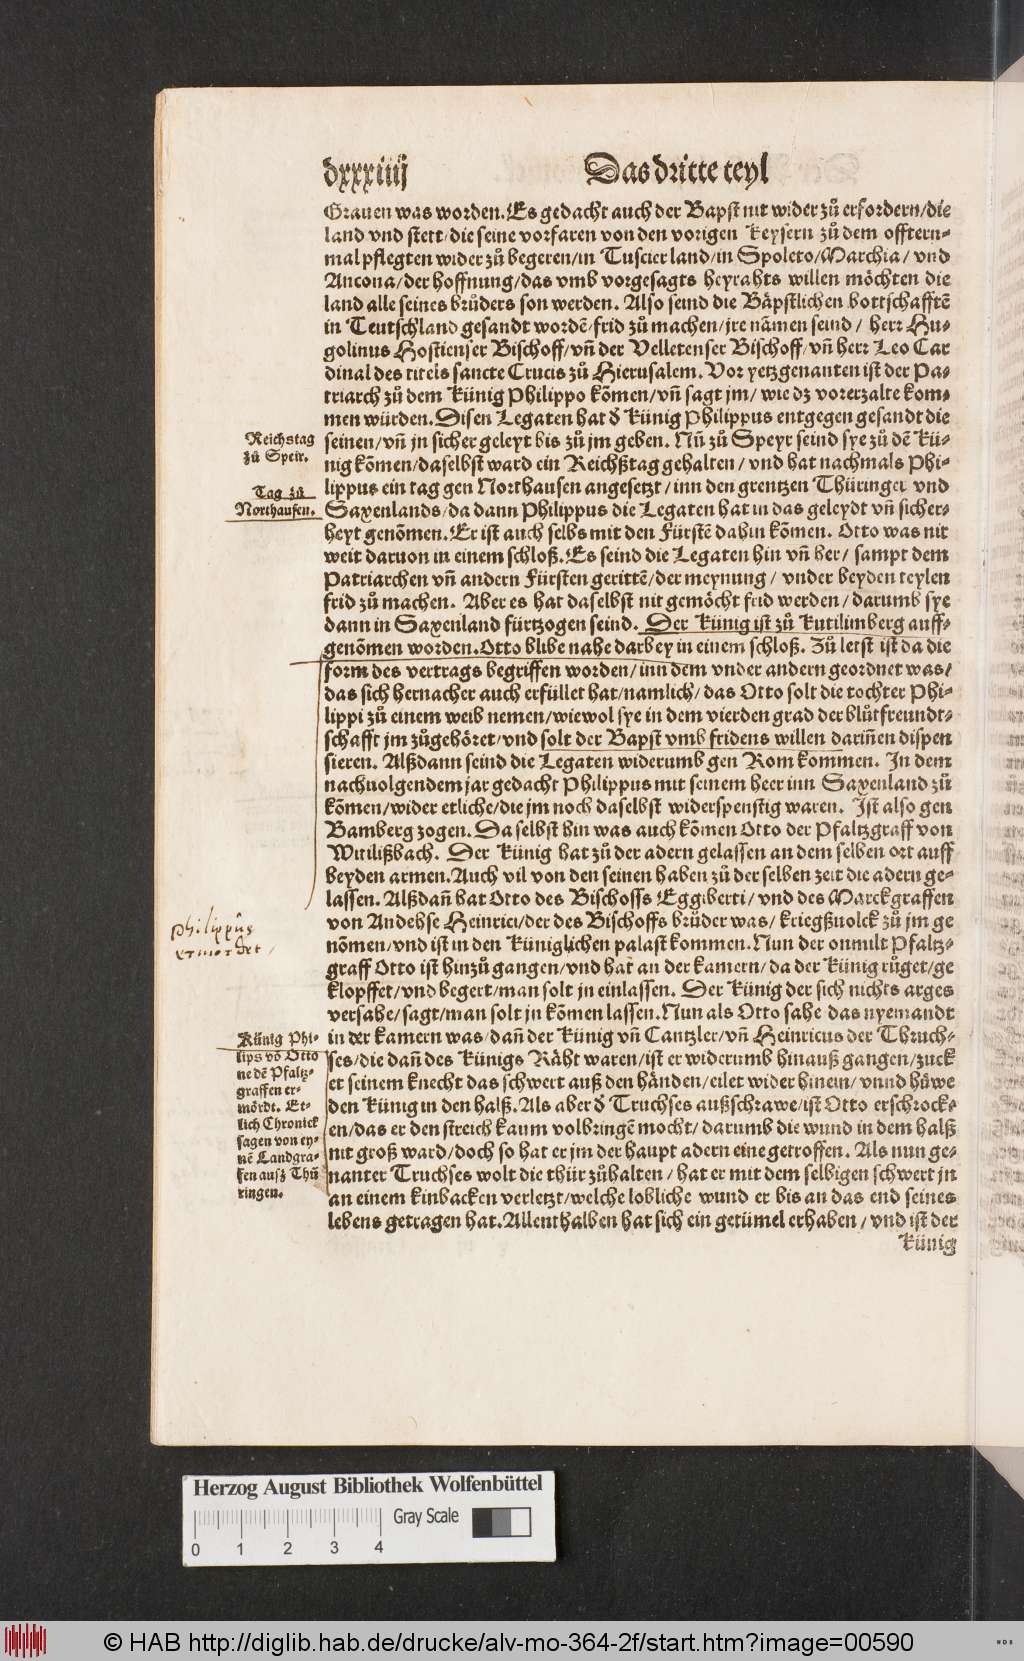 dxxxiiij Das dritte teyl
Grauen was worden. Es gedacht auch der Bapst nit wider zů erfordern/die
land vnd stett/die seine vorfaren von den vorigen Keysern zů dem offtern-
mal pflegten wider zů begeren/in Tuscier land/in Spoleto/Marchia/ vnd
Ancona/der hoffnung/das vmb vorgesagts heyrahts willen möchten die
land alle seines brůders son werden. Also seind die Bäpstlichen bottschafftē
in Teutschland gesandt wordē/frid zů machen/jre nāmen seind/ herr Hu-
golinus Hostienser Bischoff/vn̄ der Velletenser Bischoff/vn̄ herr Leo Car
dinal des titels sancte Crucis zů Hierusalem. Vor yetzgenanten ist der Pa-
triarch zů dem Künig Philippo kōmen/vn̄ sagt jm/ wie dz vorerzalte kom-
men würden. Disen Legaten hat d̄ Künig Philippus entgegen gesandt die
Reichstag
zů Speir.
seinen/vn̄ jn sicher geleyt bis zů jm geben. Nū zů Speyr seind sye zů dē Kü-
nig kōmen/daselbst ward ein Reichßtag gehalten/ vnd hat nachmals Phi-
Tag zů
Northausen.
lippus ein tag gen Northausen angesetzt/inn den grentzen Thüringer vnd
Saxenlands/da dann Philippus die Legaten hat in das geleydt vn̄ sicher-
heyt genōmen. Er ist auch selbs mit den Fürstē dahin kōmen. Otto was nit
weit daruon in einem schloß. Es seind die Legaten hin vn̄ her/ sampt dem
Patriarchen vn̄ andern Fürsten gerittē/der meynung/ vnder beyden teylen
frid zů machen. Aber es hat daselbst nit gemöcht frid werden/darumb sye
dann in Saxenland fürtzogen seind. Der Künig ist zů Kutilimberg auff-
genōmen worden. Otto blibe nahe darbey in einem schloß. Zů letst ist da die
form des vertrags begriffen worden/inn dem vnder andern geordnet was/
das sich hernacher auch erfüllet hat/namlich/das Otto solt die tochter Phi-
lippi zů einem weib nemen/wiewol sye in dem vierden grad der blůtfreundt-
schafft jm zůgehöret/vnd solt der Bapst vmb fridens willen darin̄en dispen
sieren. Alßdann seind die Legaten widerumb gen Rom kommen. In dem
nachuolgendem jar gedacht Philippus mit seinem heer inn Saxenland zů
kōmen/wider etliche/die jm noch daselbst widerspenstig waren. Ist also gen
Bamberg zogen. Daselbst hin was auch kōmen Otto der Pfaltzgraff von
Witilißbach. Der Künig hat zů der adern gelassen an dem selben ort auff
beyden armen. Auch vil von den seinen haben zů der selben zeit die adern ge-
lassen. Alßdan̄ hat Otto des Bischoffs Eggiberti/vnd des Marckgraffen
philippus
ermordet
von Andehse Heinrici/der des Bischoffs brůder was/kriegßuolck zů jm ge
nōmen/vnd ist in den Küniglichen palast kommen. Nun der onmilt Pfaltz-
graff Otto ist hinzů gangen/vnd hat an der kamern/da der Künig růget/ge
klopffet/vnd begert/man solt jn einlassen. Der Künig der sich nichts arges
versahe/sagt/man solt jn kōmen lassen. Nun als Otto sahe das nyemandt
Künig Phi-
lips vō Otto
ne dē Pfaltz-
graffen er-
mördt. Et-
lich Chronick
sagen von ey-
nē Landgra-
fen ausz Thü
ringen.
in der kamern was/dan̄ der Künig vn̄ Cantzler/vn̄ Heinricus der Thruch-
ses/die dan̄ des Künigs Räht waren/ist er widerumb hinauß gangen/zuck
et seinem knecht das schwert auß den händen/eilet wider hinein/vnnd häwe
den Künig in den halß. Als aber d̄ Truchses außschrawe/ist Otto erschrock-
en/das er den streich kaum volbringē mocht/darumb die wund in dem halß
nit groß ward/doch so hat er jm der haupt adern eine getroffen. Als nun ge-
nanter Truchses wolt die thür zůhalten/hat er mit dem selbigen schwert jn
an einem kinbacken verletzt/welche lobliche wund er bis an das end seines
lebens getragen hat. Allenthalben hat sich ein getümel erhaben/vnd ist der
Künig
Herzog August Bibliothek Wolfenbüttel
Gray Scale
0 1 2 3 4
© HAB http://diglib.hab.de/drucke/alv-mo-364-2f/start.htm?image=00590